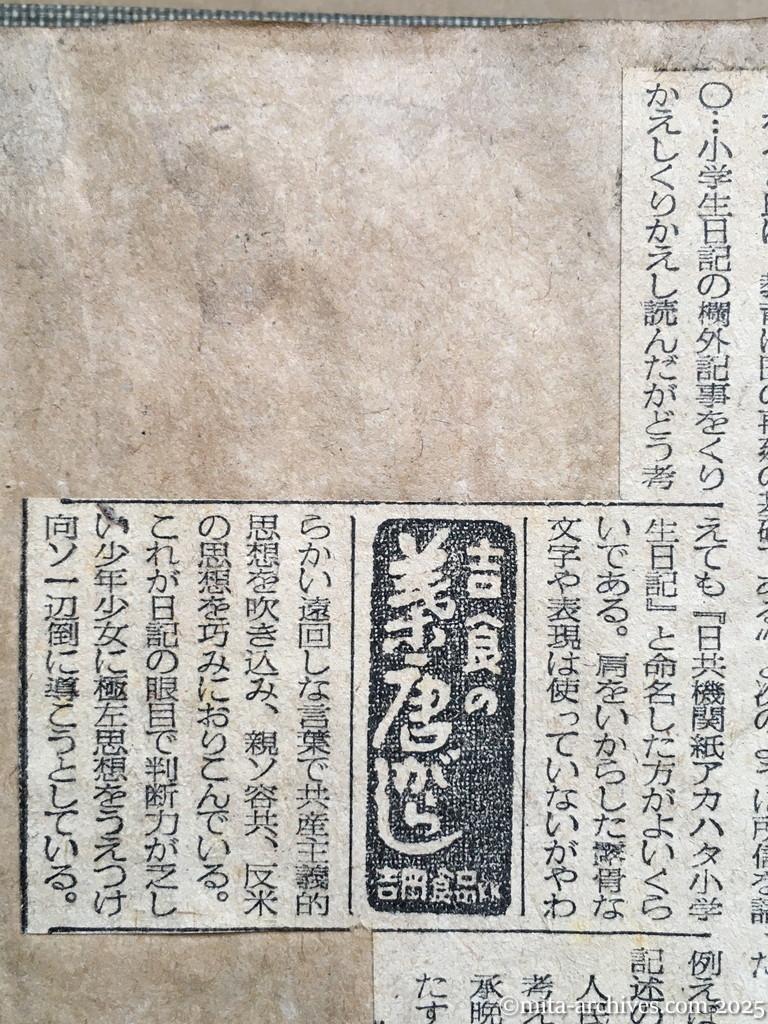 〇…小学生日記の欄外記事をくり
かえしくりかえし読んだがどう考
えても『日共機関紙アカハタ小学
生日記』と命名した方がよいくら
いである。肩をいからした露骨な
文字や表現は使っていないがやわ
吉食の
がらし
吉岡食品
らかい遠回しな言葉で共産主義的
思想を吹き込み、親ソ容共、反米
の思想を巧みにおりこんでいる。
これが日記の眼目で判断力が乏し
い少年少女に極左思想をうえつけ
向ソ一辺倒に導こうとしている。
例えば
記述の
人民
考え
承晩
たす
©mita-archives.com 2025